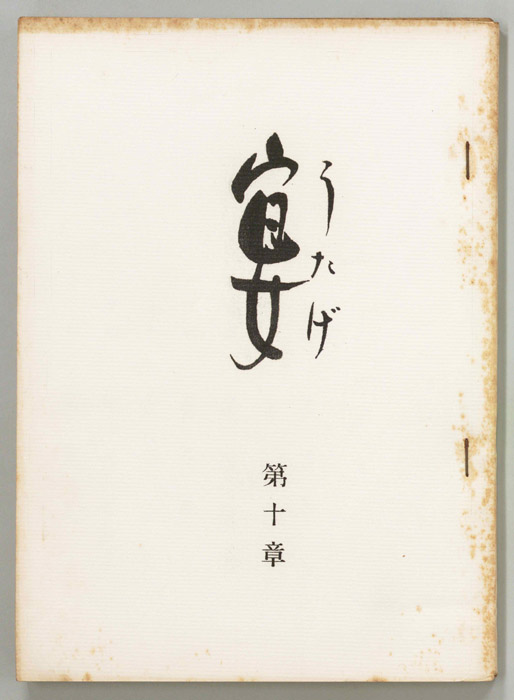 宴
うたげ
第十章